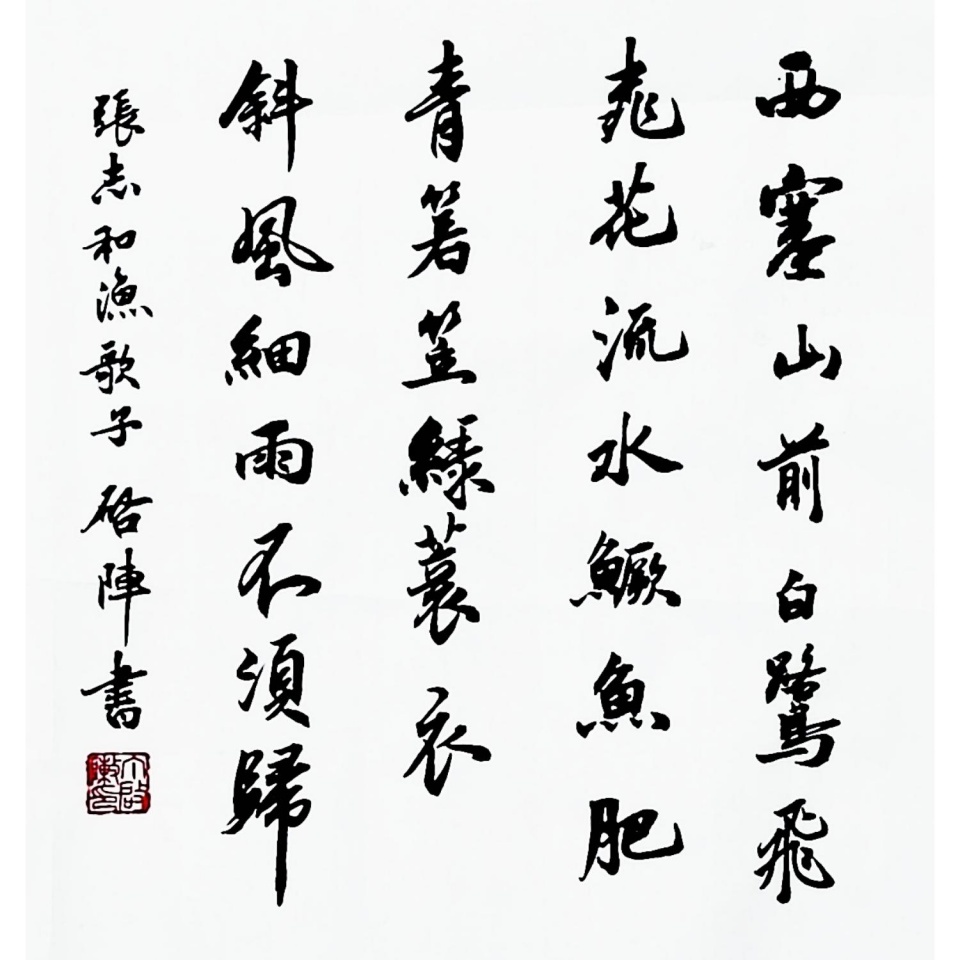 西塞山前白鷺飛
桃花流水鱖魚肥
青箬笠綠蓑衣
斜風細雨不須歸
張志和漁歌子 啓陣書
丁啓陣印